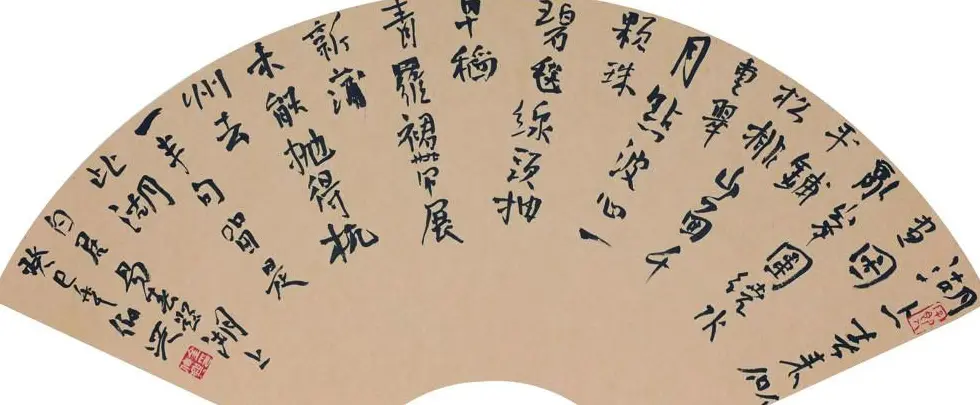 湖上春来似
画图
乱峯圍繞水
平鋪
松排山面千
重翠
月點波心一
顆珠
碧毯線頭抽
早稻
青羅裙帶展
新蒲
未能抛得杭
州去
一半句留是
此湖
白居易春題湖上
癸巳年伯